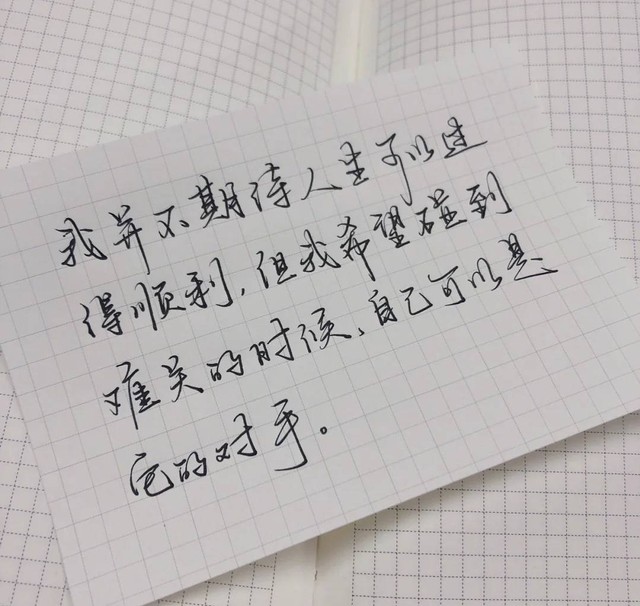 我并不期待人生可以过
得顺利，但我希望碰到
难关的时候，自己可以是
它的对手。